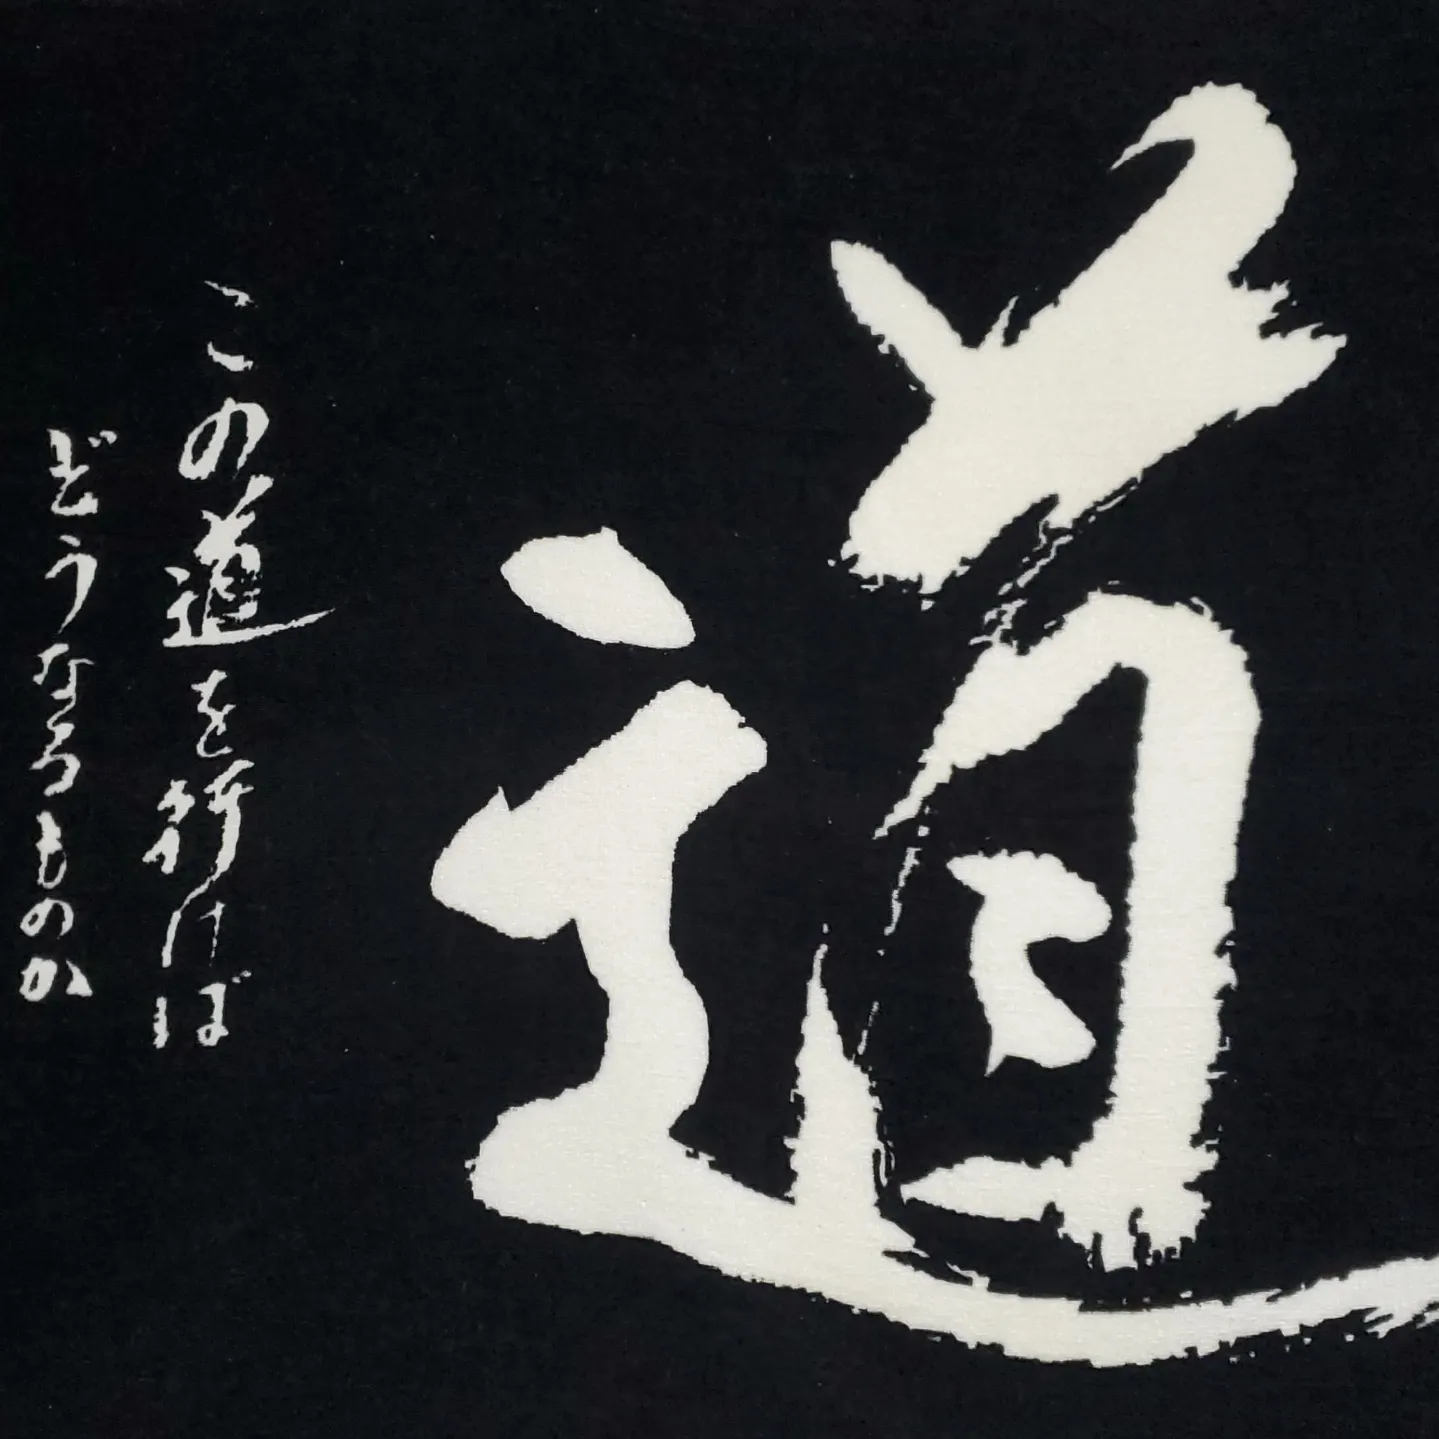 道
この道を行けば
どうなるものか